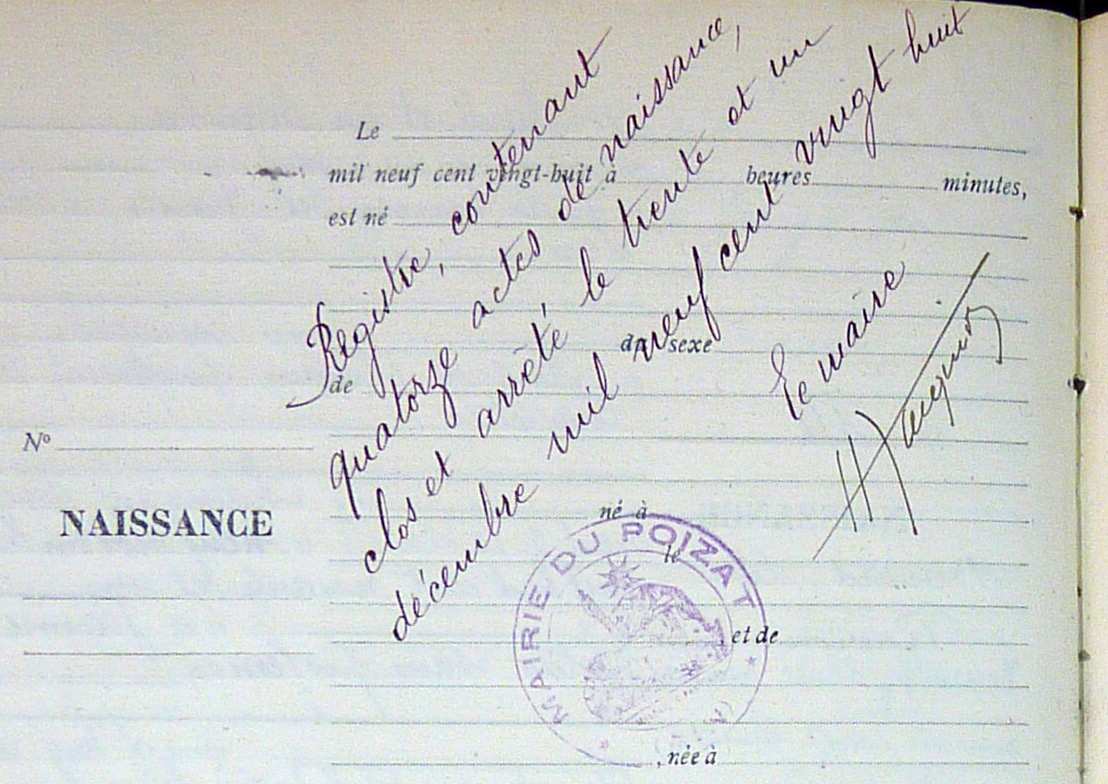 Le
mil neuf cent vingt-huit à heures minutes,
est né
du sexe
de
né à
le
et de
, née à
N°
NAISSANCE
Registre, contenant
quatorze actes de naissance,
clos et arrêté, le trente et un
décembre mil neuf cent vingt huit
Le maire
MAIRIE DU POIZAT